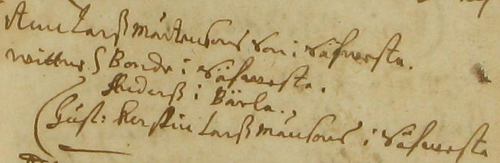 Lars Mårtensons Son i Säfvesta.
wittne Bonde i Säfvesta.
Anders i Bärla.
Hust: Kerstin Lars Månsons i Säfvesta